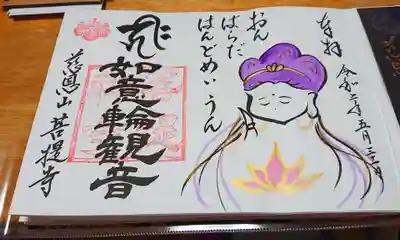 奉拝
令和二年五月二十一日
おん
ばらだ
はんどめい
うん
如意輪観音
慈恩山 菩提寺